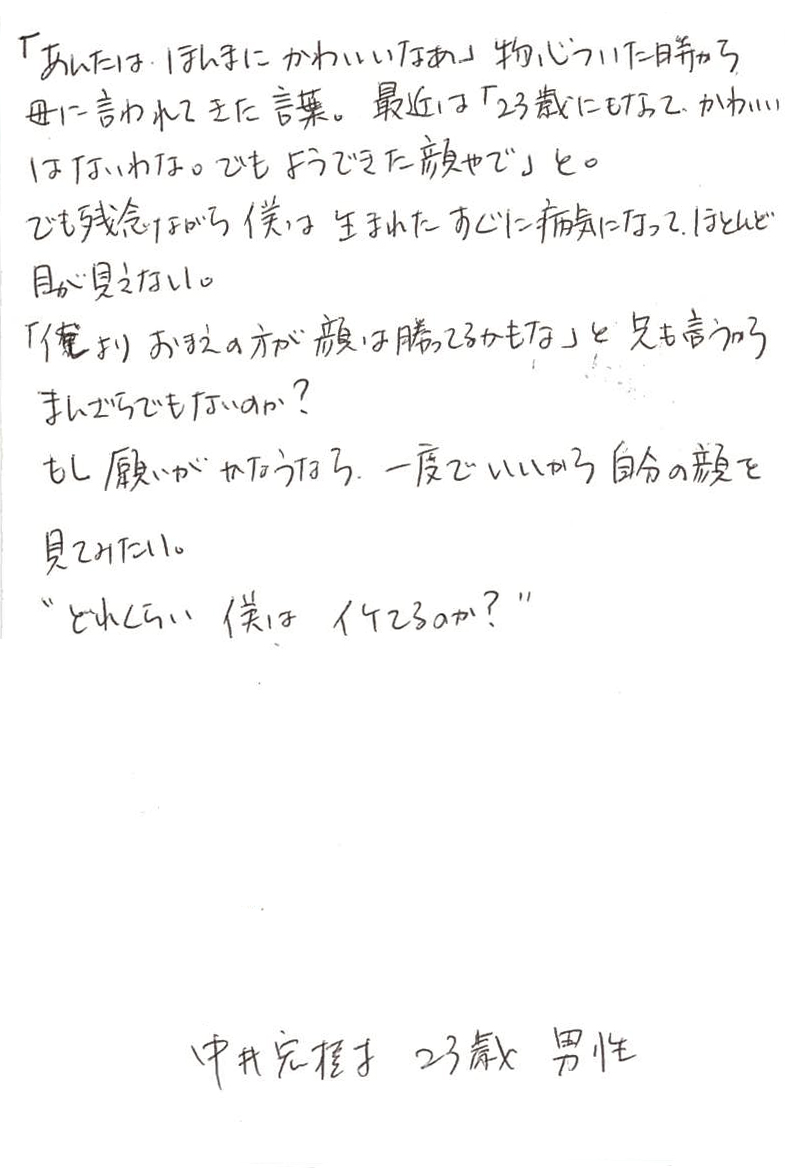 「あんたは ほんまに かわいいなあ」 物心ついた時から
母に言われてきた言葉。 最近は「23歳にもなって、かわいい
はないわな。でも ようできた顔やで」と。
でも残念ながら 僕は 生まれた すぐに病気になって、ほとんど
目が見えない。
「俺より おまえの方が 顔は勝ってるかもな」と 兄も言うから
まんざらでもないのか?
もし 願いが かなうなら、一度でいいから 自分の顔を
見てみたい。
“どれくらい 僕は イケてるのか?”
中井宏 23歳 男性